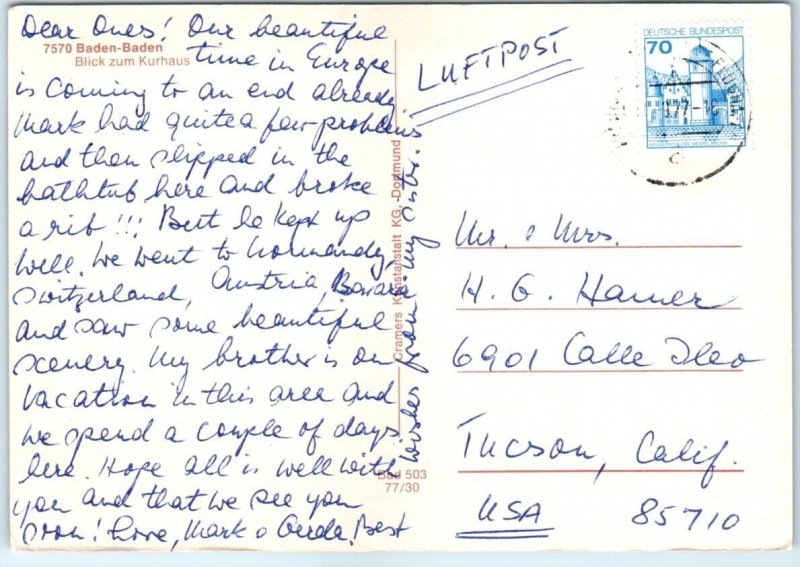 7570 Baden-Baden
Blick zum Kurhaus
Dear Ones! Our beautiful
time in Europe
is coming to an end already
Mark had quite a few problems
and then slipped in the
bathtub here and broke
a rib!!! But he kept up
well. We went to Normandy,
Switzerland, Austria, Bavaria
and saw some beautiful
scenery. My brother is on
vacation in this area and
we spend a couple of days
here. Hope all is well with
you and that we see you
soon! Love, Mark & Gerda. Best
wishes from my sister.
Cramers Kunstanstalt KG, Dortmund
Bad 503
77/30
LUFTPOST
DEUTSCHE BUNDESPOST
70
Mr. & Mrs.
H. G. Hamer
6901 Calle Ileo
Tucson, Calif.
USA 85710